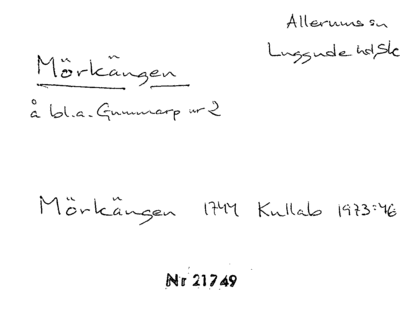 Allerums sn
Luggude hd, Sk
Mörkängen
å bl.a. Gunnarp nr 2
Mörkängen 1744 Kullab 1973:46
Nr 21749